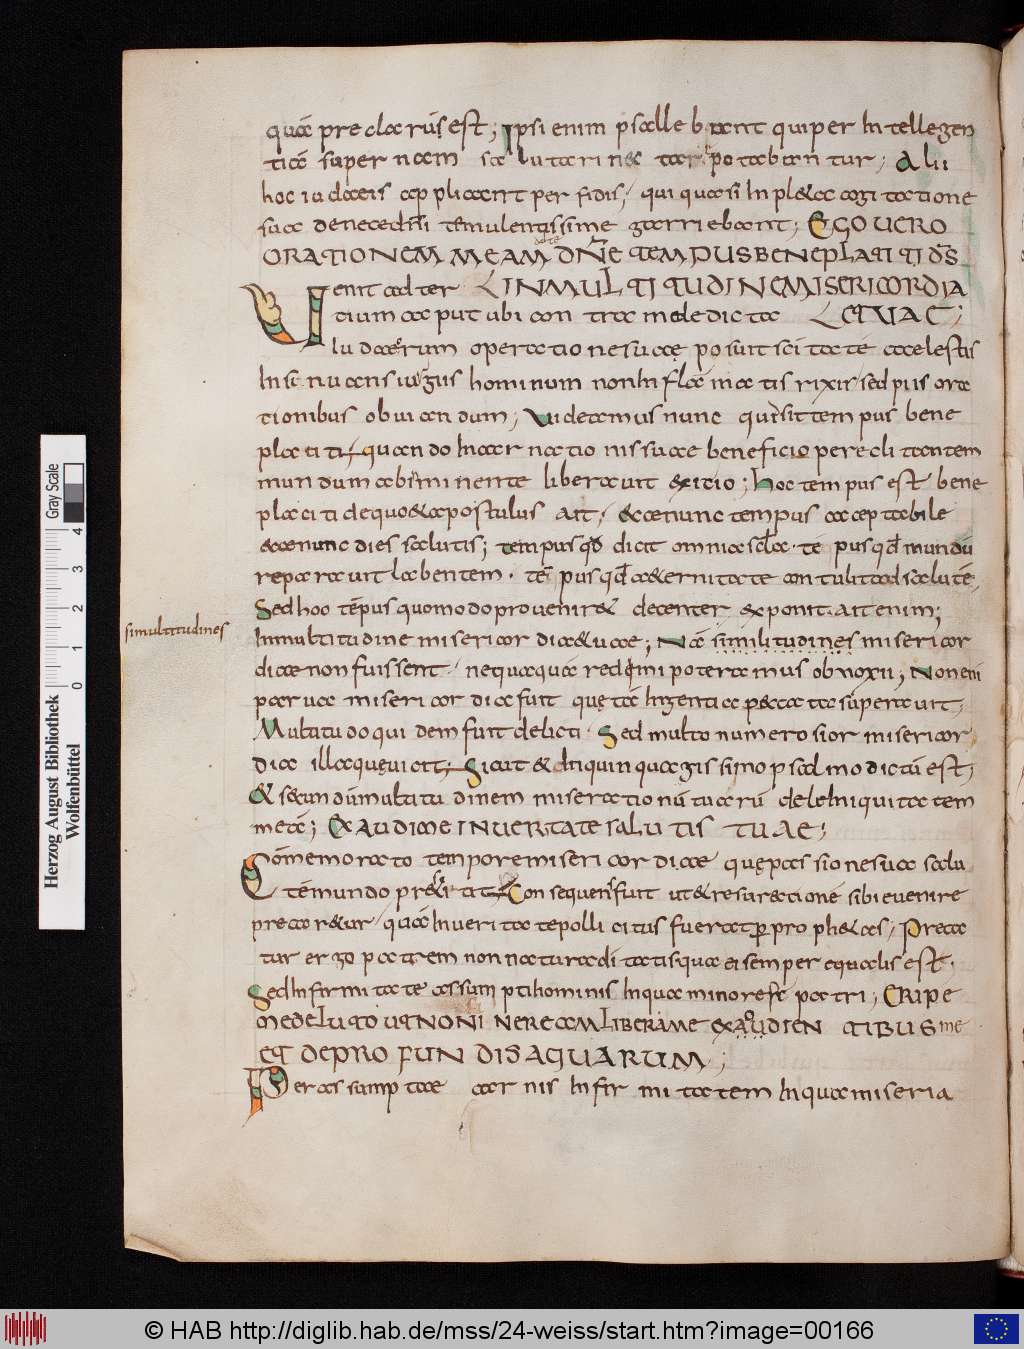 quā preclarūs est; Ipsi enim psallebant qui per intellegen
tiā super nam salutarinae tar potabantur; Alii
hoc iudaeis applicant perfidis, qui quasi inpleta cogitatione
sua denece dnī temulentissime garriebant; EGO UERO
ORATIONEM MEAM AD TE DNE TEMPUS BENEPLATITI DS
Uenit ad ter IN MULTITUDINE MISERICORDIA
tium caput ubi contra maledicta E TUAE;
iudaeorum operatione suae posuit scitate caelestis
insinuans iugus hominum non inflammatis rixis sed piis ora
tionibus obuiandum; Uideamus nunc quir sit tempus bene
placiti, quando incarnationis suae beneficio pereclitantem
mundum ab imminente liberauit exitio; hoc tempus est bene
placiti de quo et apostulus ait, ecce nunc tempus acceptabile
ecce nunc dies salutis; tempus qd dicit omnia scla. tem pus qd mundū
reparauit labentem. tem pus qd aeternitate contulit ad salutē,
Sed hoc tēpus quomodo proueniret decenter exponit. ait enim;
simultitudines
In multitudine misericordiae tuae; Nā similitudines misericor
diae non fuissent. nequaquā redimi poteramus obnoxii; Non eni
parua misericordia fuit quę tā ingentia peccata superauit,
Multitudo quidem fuit delicti. Sed multo numerosior misericor
dia illa quę uicit, Sicut et in quinquagissimo psalmo dictū est,
Et secundū multitudinem miserationū tuarū dele iniquitatem
meā; EXAUDI ME IN UERITATE SALUTIS TUAE;
Cōmemorato tempore misericordiae quę passione sua salu
tē mundo prestitit Consequens fuit ut et resurrectionē sibi euenire
precaretur, quā in ueritate pollicitus fuerat per prophetas, Preca
tur ergo patrem non naturae ditatis qua ei semper equalis est.
Sed infirmitate assumpti hominis in qua minor est patri, ERIPE
ME DE LUTO UT NON INEREAM LIBERA ME EX AUDIENTIBUS me
ET DE PROFUNDIS AQUARUM;
Per assamptae carnis infirmitatem in qua miseria
Herzog August Bibliothek
Wolfenbüttel
Gray Scale
0 1 2 3 4
© HAB http://diglib.hab.de/mss/24-weiss/start.htm?image=00166